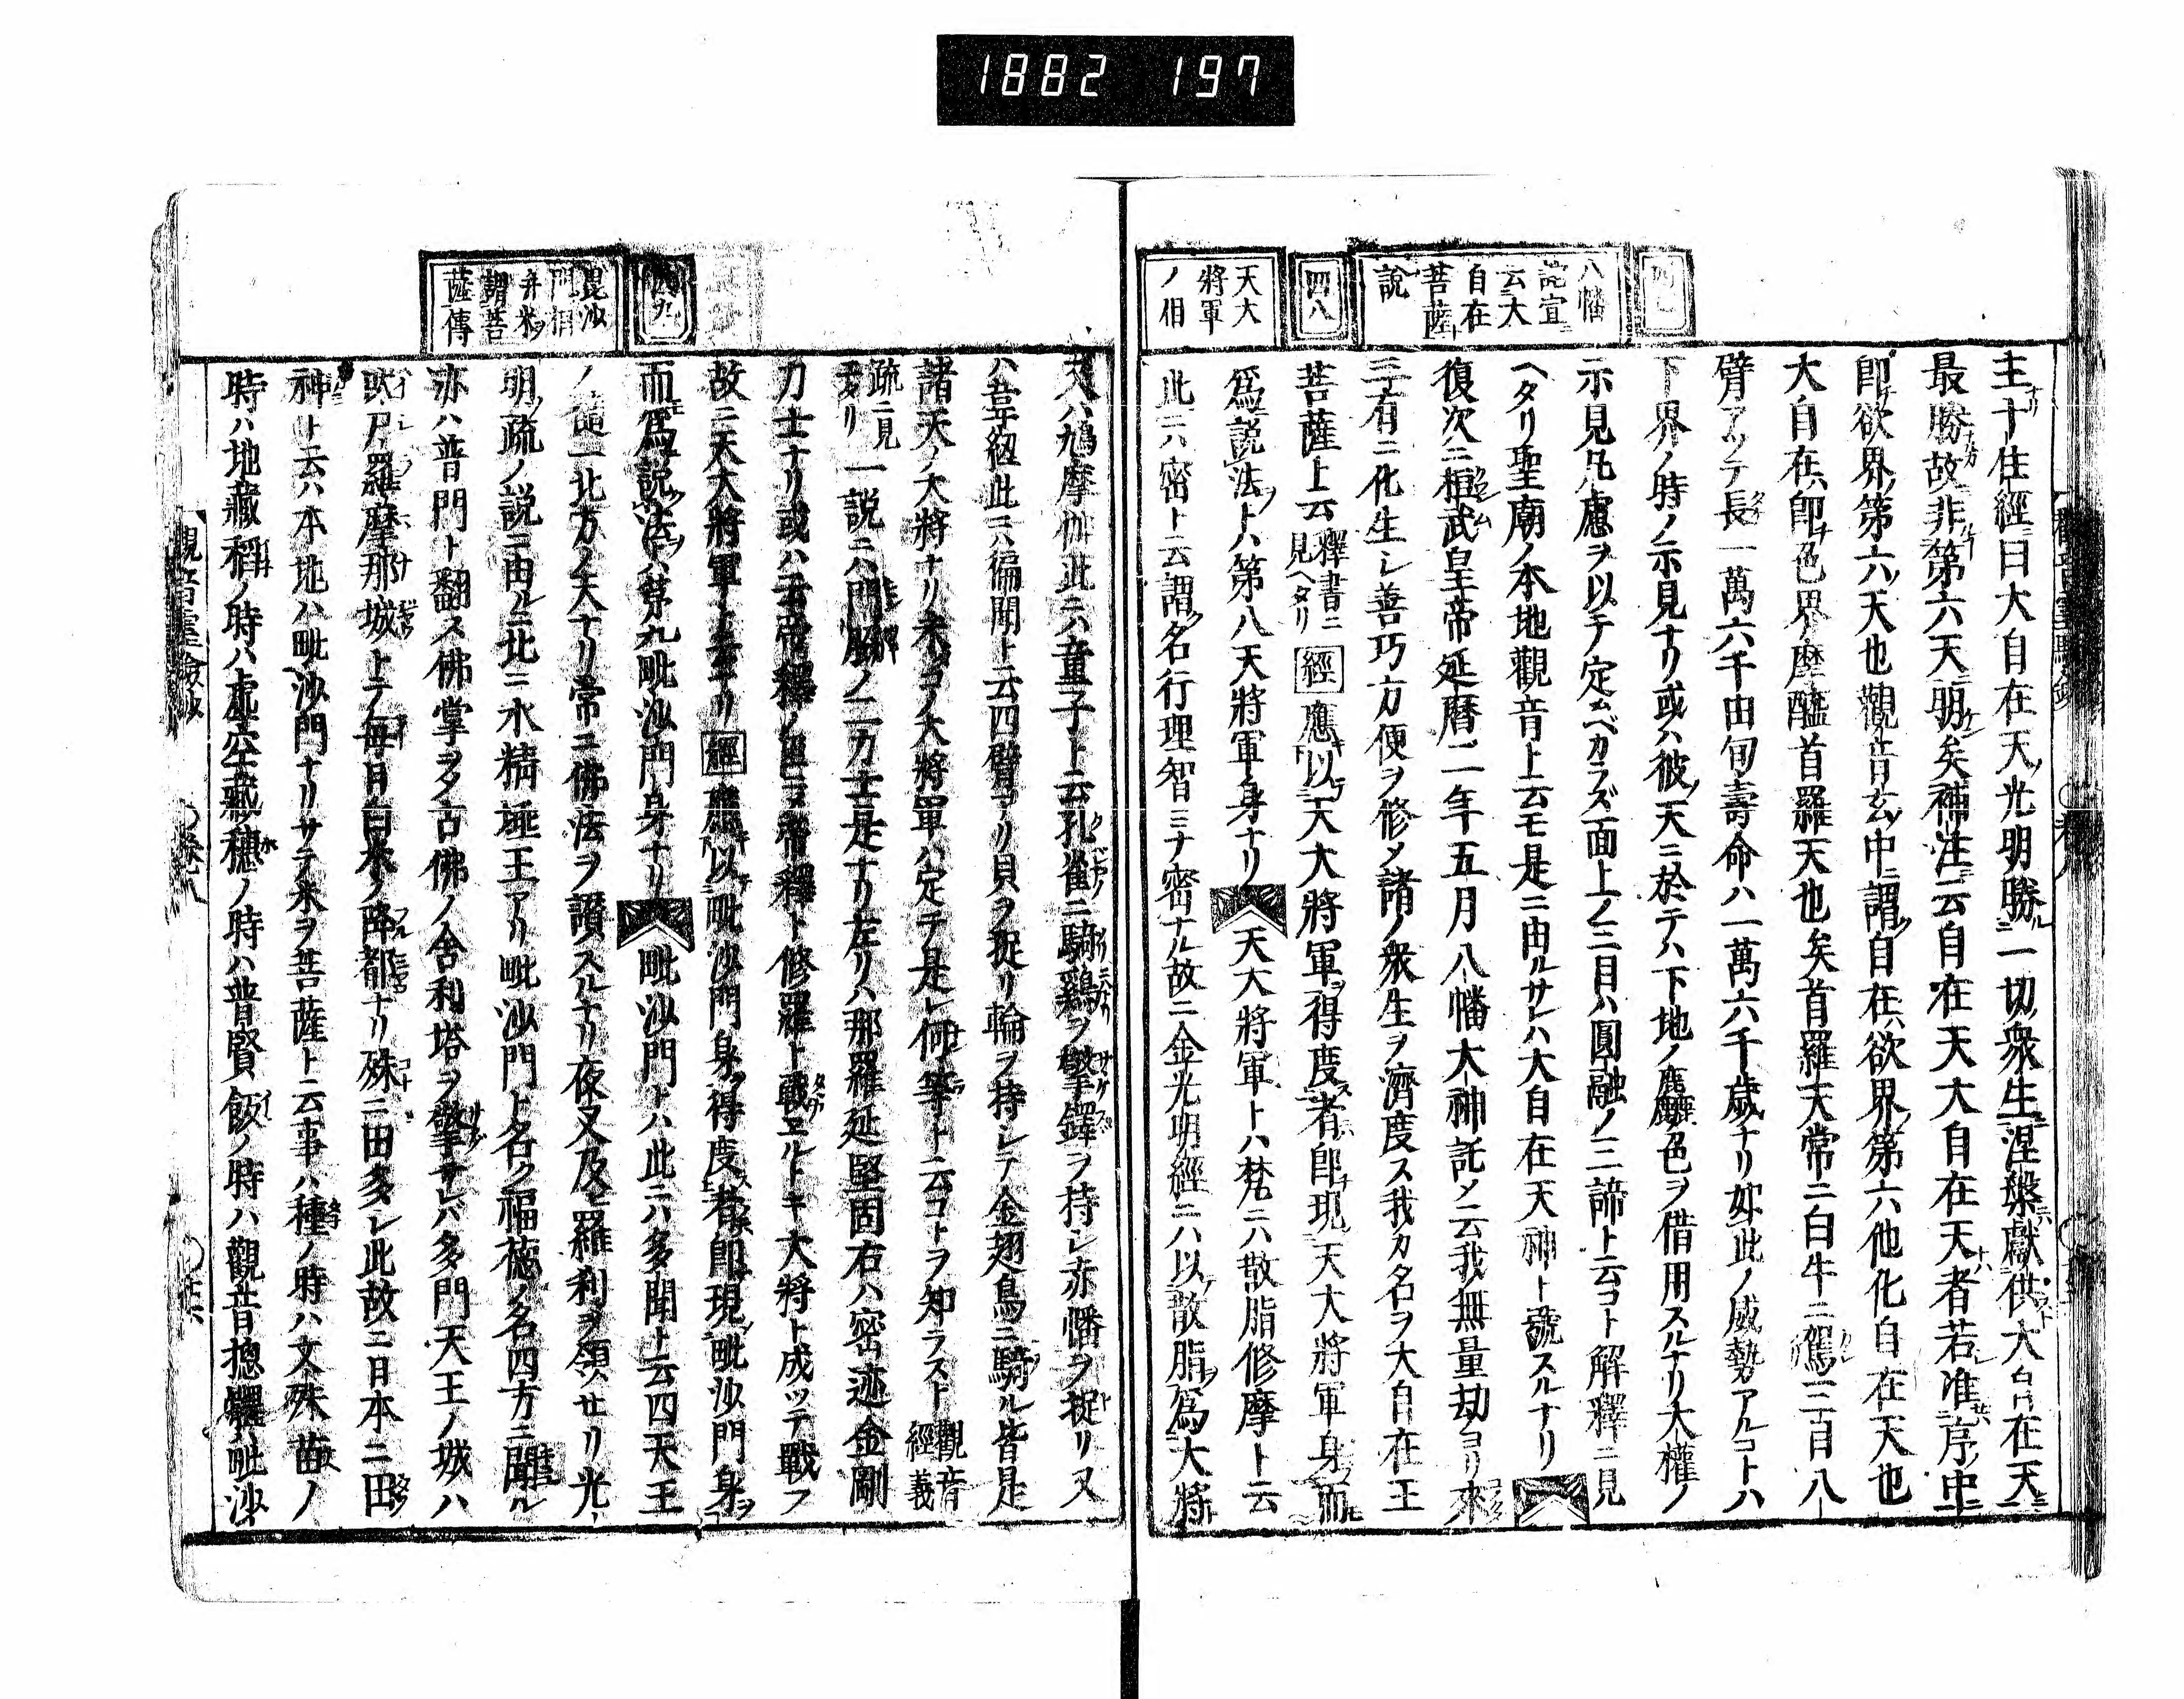 1882 197
四七
八幡
託宣
云大
自在
菩薩ト
說
四八
天大
將軍
ノ相
主十住經曰大自在天光明勝一切衆生涅槃獻供大自在天
最勝故非第六天明矣補注云自在天大自在天者若准序中
即欲界第六天也觀音玄中謂自在欲界第六他化自在天也
大自在即色界摩醯首羅天也矣首羅天常ニ白牛ニ駕三目八
臂アッテ長一萬六千由旬壽命ハ一萬六千歲ナリ如此ノ威勢アルコトハ
下界ノ時ノ示見ナリ或ハ彼天ニ於テハ下地ノ麁色ヲ借用スルナリ大權ノ
示見凡慮ヲ以テ定ムベカラズ面上ノ三目ハ圓融ノ三諦ト云コト解釋ニ見
ヘタリ聖廟ノ本地觀音ト云モ是ニ由ルサレハ大自在天神ト號スルナリ
復次ニ桓武皇帝延曆二年五月八幡大神託ノ云我無量劫ヨリ來
三有ニ化生シ善巧方便ヲ修メ諸ノ衆生ヲ濟度ス我カ名ヲ大自在王
菩薩ト云 釋書ニ見ヘタリ 經 應以天大將軍得度者即現天大將軍身而
爲說法トハ第八天將軍身ナリ 天大將軍トハ梵ニハ散脂修摩ト云
此ニハ密ト云謂名行理智ミナ密ナル故ニ金光明經ニハ以散脂爲大將
四九
毘沙
門相
弁米ヲ
謂菩
薩傳
天ハ鳩摩伽此ニハ童子ト云孔雀ニ騎鷄ヲ擎鐸ヲ持シ赤幡ヲ捉リ又
ハ韋紐此ニハ徧聞ト云四臂アリ貝ヲ捉リ輪ヲ持シテ金翅鳥ニ騎ル皆是
諸天ノ大將ナリ未コノ大將軍ハ定テ是レ何等ト云コトヲ知ラスト 觀音經義
疏ニ見ヘタリ 一說ニハ門脇ノ二力士是ナリ左リハ那羅延堅固右ハ密迹金剛
力士ナリ或ハ云帝釋ノ臣ニテ帝釋ト修羅ト戰ヱルトキ大將ト成ッテ戰フ
故ニ天大將軍ト云ナリ 經 應以毗沙門身得度者即現毗沙門身
而爲說法トハ第九毗沙門身ナリ 毗沙門トハ此ニハ多聞ト云四天王
ノ隨一北方ノ天ナリ常ニ佛法ヲ護スルナリ夜叉及ヒ羅刹ヲ領セリ光
明疏ノ說ニ由ルニ北ニ水精埵王アリ毗沙門ト名ク福德ノ名四方ニ聞ル
亦ハ普門ト翻ス佛掌ヲ多古佛ノ舍利塔ヲ擎サレバ多門天王ノ城ハ
吠尸羅摩那城トテ每日白米ノ降都ナリ殊ニ田多シ此故ニ日本ニ田
神ト云ハ本地ハ毗沙門ナリサテ米ヲ菩薩ト云事ハ種ノ時ハ文殊苗ノ
時ハ地藏稻ノ時ハ虛空藏穗ノ時ハ普賢飯ノ時ハ觀音摠體毗沙